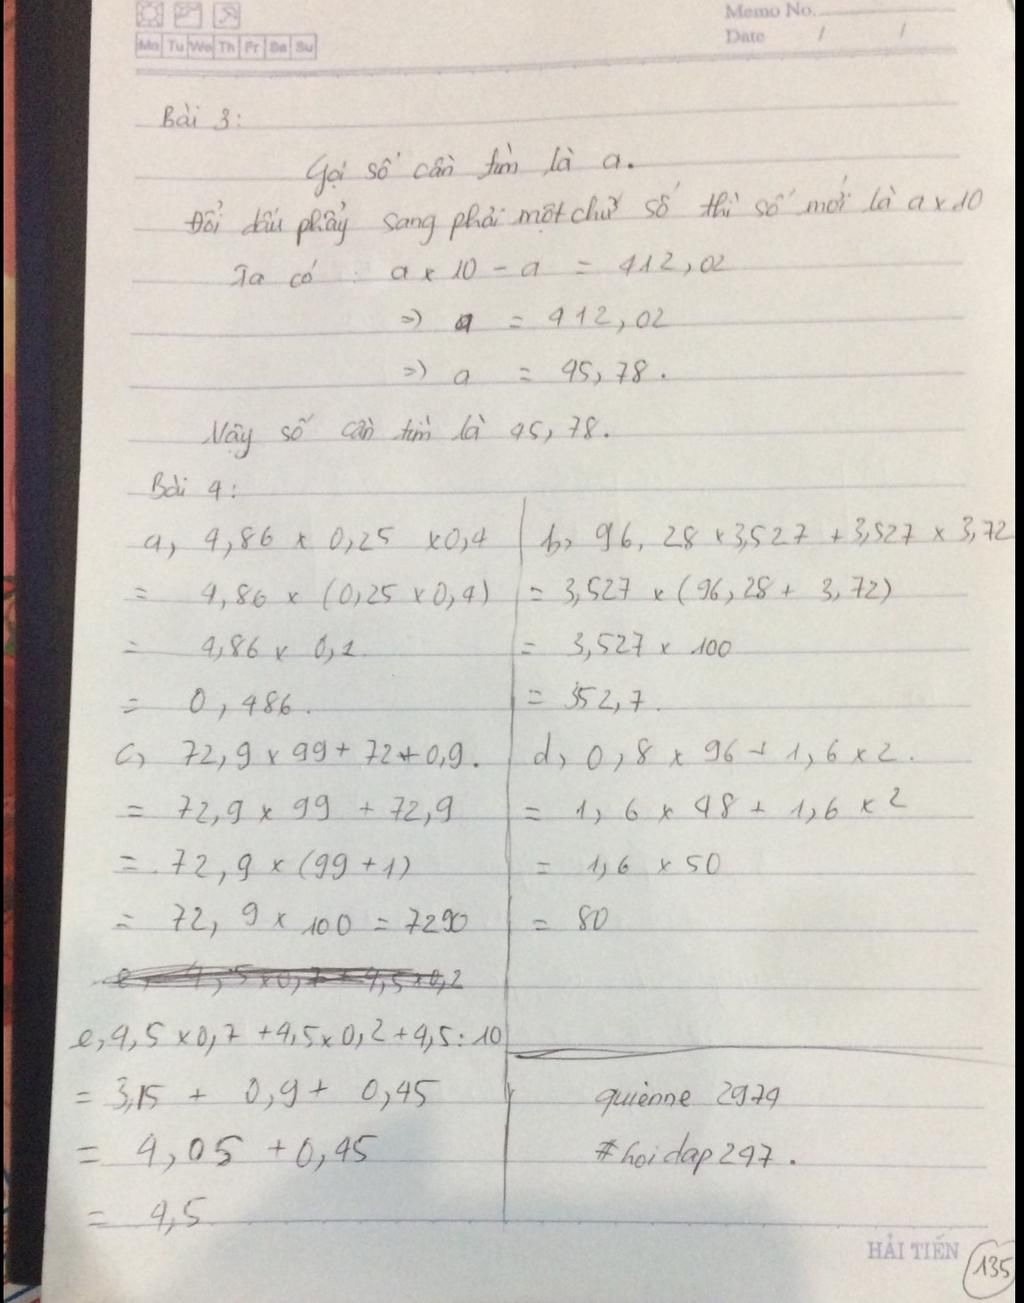 Memo No.
Date / /
Mo Tu We Th Fr Sa Su
Bài 3:
Gọi số cần tìm là a.
Đổi dấu phẩy sang phải một chữ số thì số mới là a x 10
Ta có : a x 10 - a = 412,02
=> a = 412,02
=> a = 45,78.
Vậy số cần tìm là 45,78.
Bài 4:
a, 4,86 x 0,25 x 0,4
= 4,86 x (0,25 x 0,4)
= 4,86 x 0,1
= 0,486.
b, 96,28 x 3,527 + 3,527 x 3,72
= 3,527 x (96,28 + 3,72)
= 3,527 x 100
= 352,7.
c, 72,9 x 99 + 72 + 0,9.
= 72,9 x 99 + 72,9
= 72,9 x (99 + 1)
= 72,9 x 100 = 7290
d, 0,8 x 96 + 1,6 x 2.
= 1,6 x 48 + 1,6 x 2
= 1,6 x 50
= 80
e, 4,5 x 0,7 + 4,5 x 0,2
e, 4,5 x 0,7 + 4,5 x 0,2 + 4,5 : 10
= 3,15 + 0,9 + 0,45
= 4,05 + 0,45
= 4,5
quienne 2974
#hoidap247.
HẢI TIẾN
135